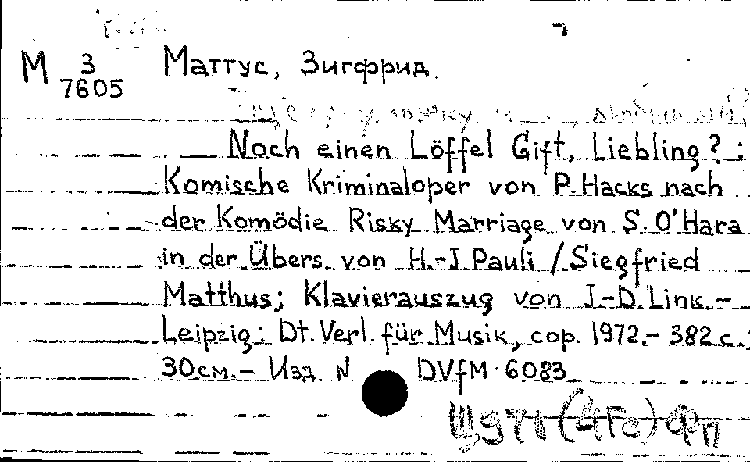 М 3
7605
Маттус, Зигфрид.
Noch einen Löffel Gift, Liebling? :
Komische Kriminaloper von P. Hacks nach
der Komödie Risky Marriage von S. O'Hara
in der Übers. von H.-J. Pauli / Siegfried
Matthus; Klavierauszug von J.-D. Link. –
Leipzig: Dt. Verl. für Musik, cop. 1972. – 382 с.;
30 см. – Изд. N DVfM 6083